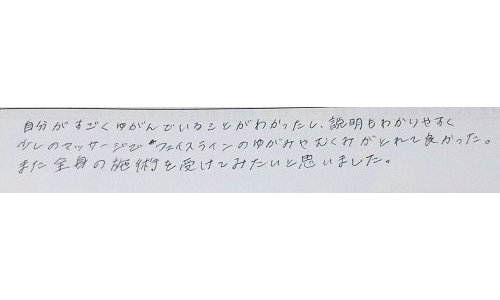 自分がすごくゆがんでいることがわかったし、説明もわかりやすく
少しのマッサージで〝フェイスラインのゆがみやむくみがとれて良かった。
また全身の施術を受けてみたいと思いました。